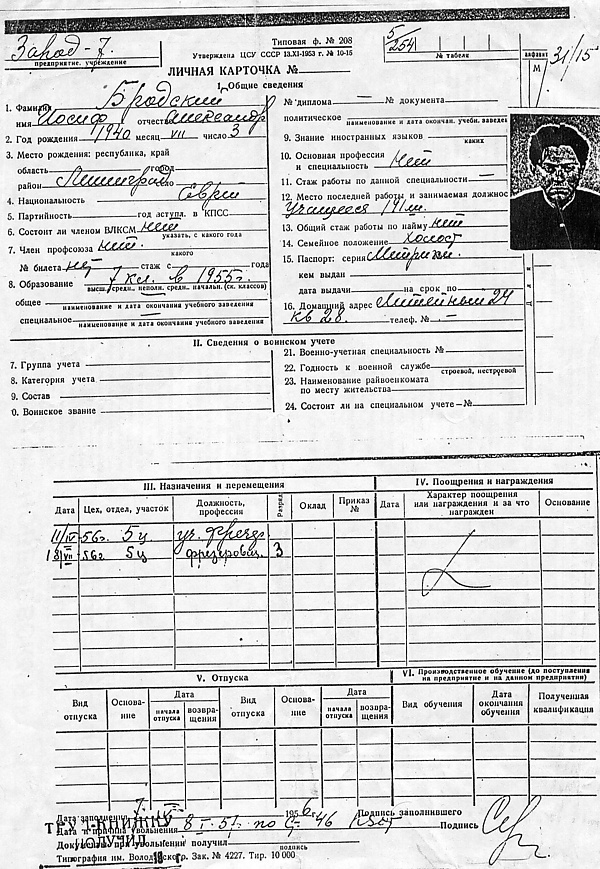 Завод-7.
предприятие, учреждение
Типовая ф. № 208
Утверждена ЦСУ СССР 13.XI-1953 г. № 10-15
5/254
№ табеля
алфавит
М
31/15
ЛИЧНАЯ КАРТОЧКА №
I. Общие сведения
1. Фамилия Бродский
имя Иосиф отчество Александр
2. Год рождения 1940 месяц VII число 3
3. Место рождения: республика, край
область город
район Ленинград
4. Национальность Еврей
5. Партийность год вступл. в КПСС
6. Состоит ли членом ВЛКСМ нет
указать, с какого года
7. Член профсоюза нет.
какого
№ билета нет стаж с года
8. Образование 7 кл. в 1955г.
высш., средн., неполн. средн., начальн. (ск. классов)
общее
наименование и дата окончания учебного заведения
специальное
наименование и дата окончания учебного заведения
№ диплома № документа
политическое
наименование и дата окончан. учебн. заведе
9. Знание иностранных языков
каких
10. Основная профессия
и специальность нет
11. Стаж работы по данной специальности
12. Место последней работы и занимаемая должнос
Учащегося 191 ш.
13. Общий стаж работы по найму нет
14. Семейное положение Холост
15. Паспорт: серия Метрики
кем выдан
дата выдачи на срок по
16. Домашний адрес Литейный 24
кв 28. телеф. №
II. Сведения о воинском учете
7. Группа учета
8. Категория учета
9. Состав
0. Воинское звание
21. Военно-учетная специальность №
22. Годность к военной службе
строевой, нестроевой
23. Наименование райвоенкомата
по месту жительства
24. Состоит ли на специальном учете — №
III. Назначения и перемещения
IV. Поощрения и награждения
Дата Цех, отдел, участок Должность, профессия Разряд Оклад Приказ № Дата Характер поощрения или награждения и за что награжден Основание
11/IV 56г. 5ц уч. фрезер
18/VII 56г 5ц фрезеровщ. 3
V. Отпуска
VI. Производственное обучение (до поступления на предприятие и на данном предприятии)
Вид отпуска Основание Дата начала отпуска возвращения Вид отпуска Основание Дата начала отпуска возвращения Вид обучения Дата окончания обучения Полученная квалификация
Дата заполнения 195 6 г. Подпись заполнившего
Дата и причина увольнения 8 I. 57. по ст 46 КЗоТ Подпись
Документы при увольнении получил
подпись
ТРУД.КНИЖКУ
ПОЛУЧИЛ
19 г
Типография им. Володарского. Зак. № 4227. Тир. 10 000